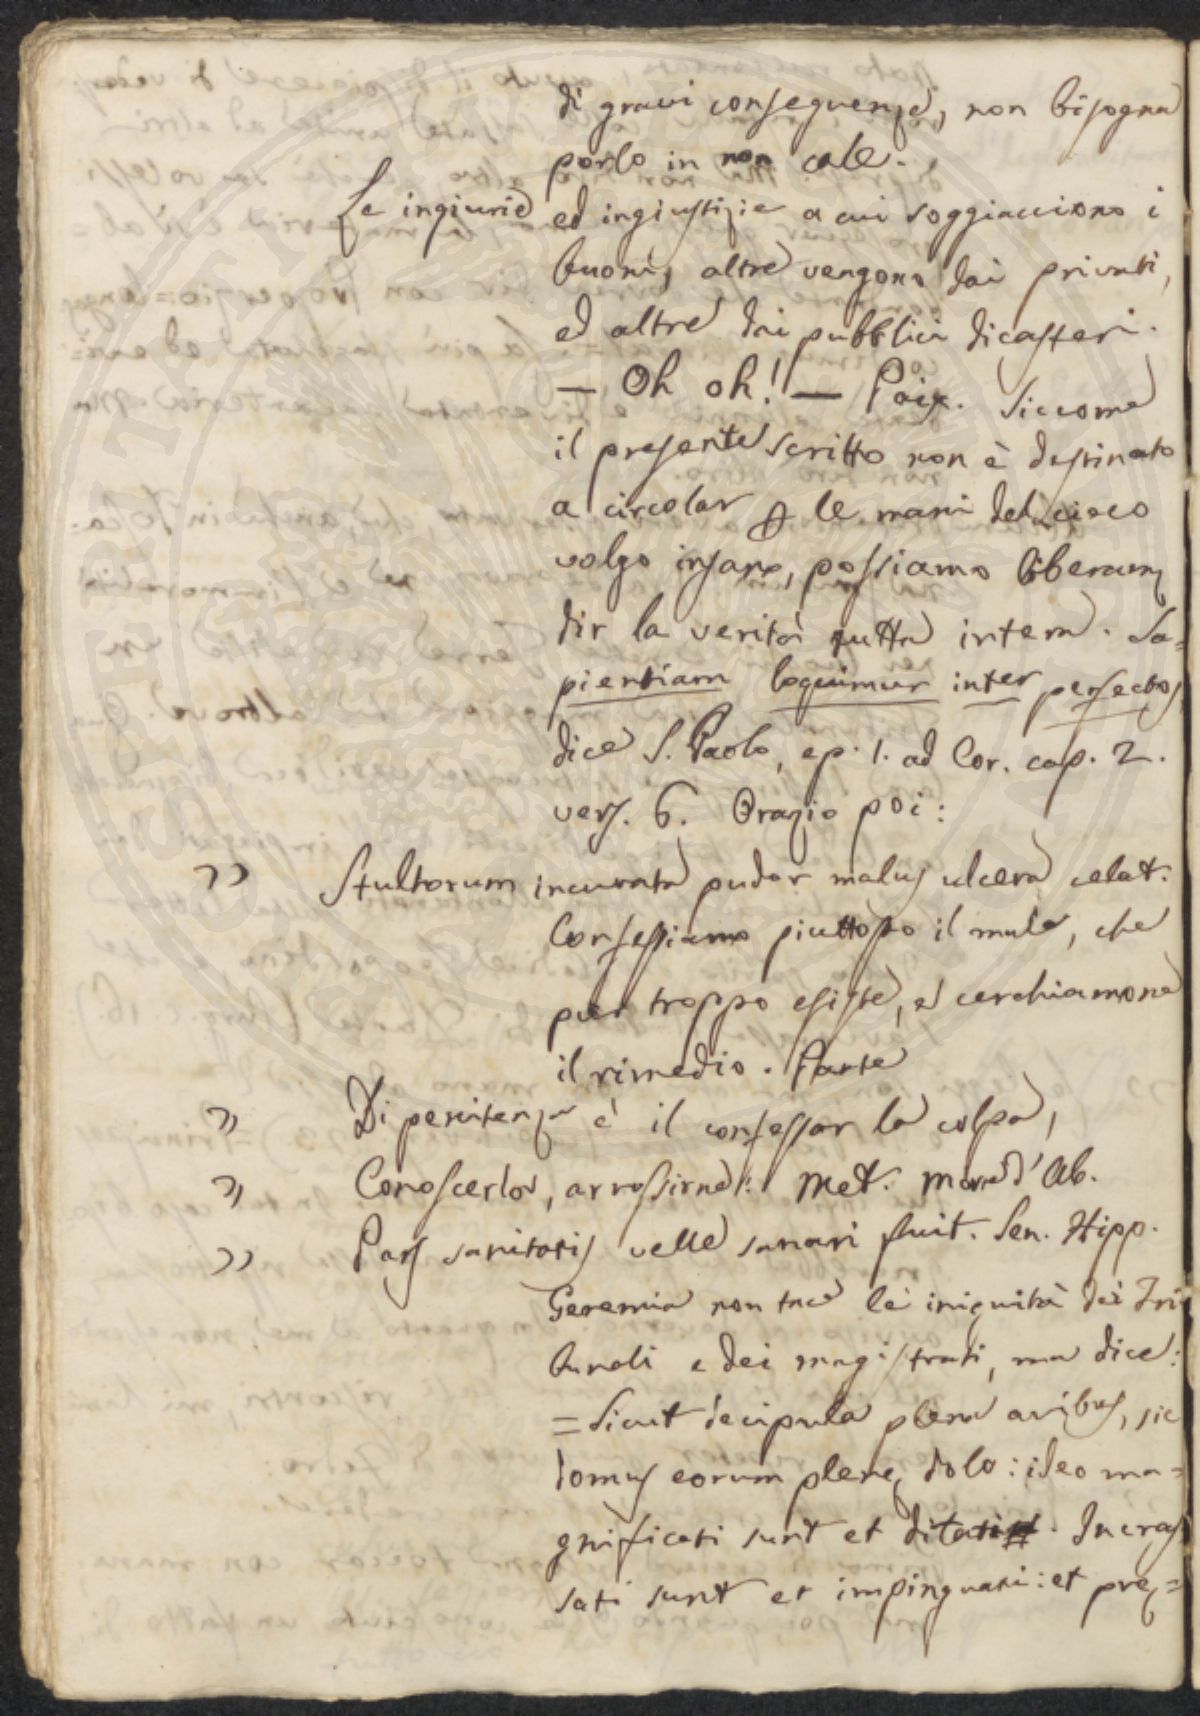 di gravi conseguenze, non bisogna
porlo in non cale.
Le ingiurie ed ingiustizie a cui soggiacciono i
buoni, altre vengono dai privati,
ed altre dai pubblici dicasteri.
— Oh oh! — Paix. Siccome
il presente scritto non è destinato
a circolar p le mani del cieco
volgo insano, possiamo liberam
dir la verità tutta intera. Sa=
pientiam loquimur inter perfectos,
dice S. Paolo, ep. 1. ad Cor. cap. 2.
vers. 6. Orazio poi:
" Stultorum incurata pudor malus ulcera celat.
Confessiamo piuttosto il male, che
pur troppo esiste, e cerchiamone
il rimedio. Parte
" Di penitenza è il confessar la colpa,
" Conoscerla, arrossirne: Met. Morte d'Ab.
" Pars sanitatis velle sanari fuit. Sen. Hipp.
Geremia non tace le iniquità dei Tri
bunali e dei magistrati, ma dice:
= Sicut decipula plena avibus, sic
domus eorum plenę dolo: ideo ma=
gnificati sunt et ditati. Incras
sati sunt et impinguati: et pręs=